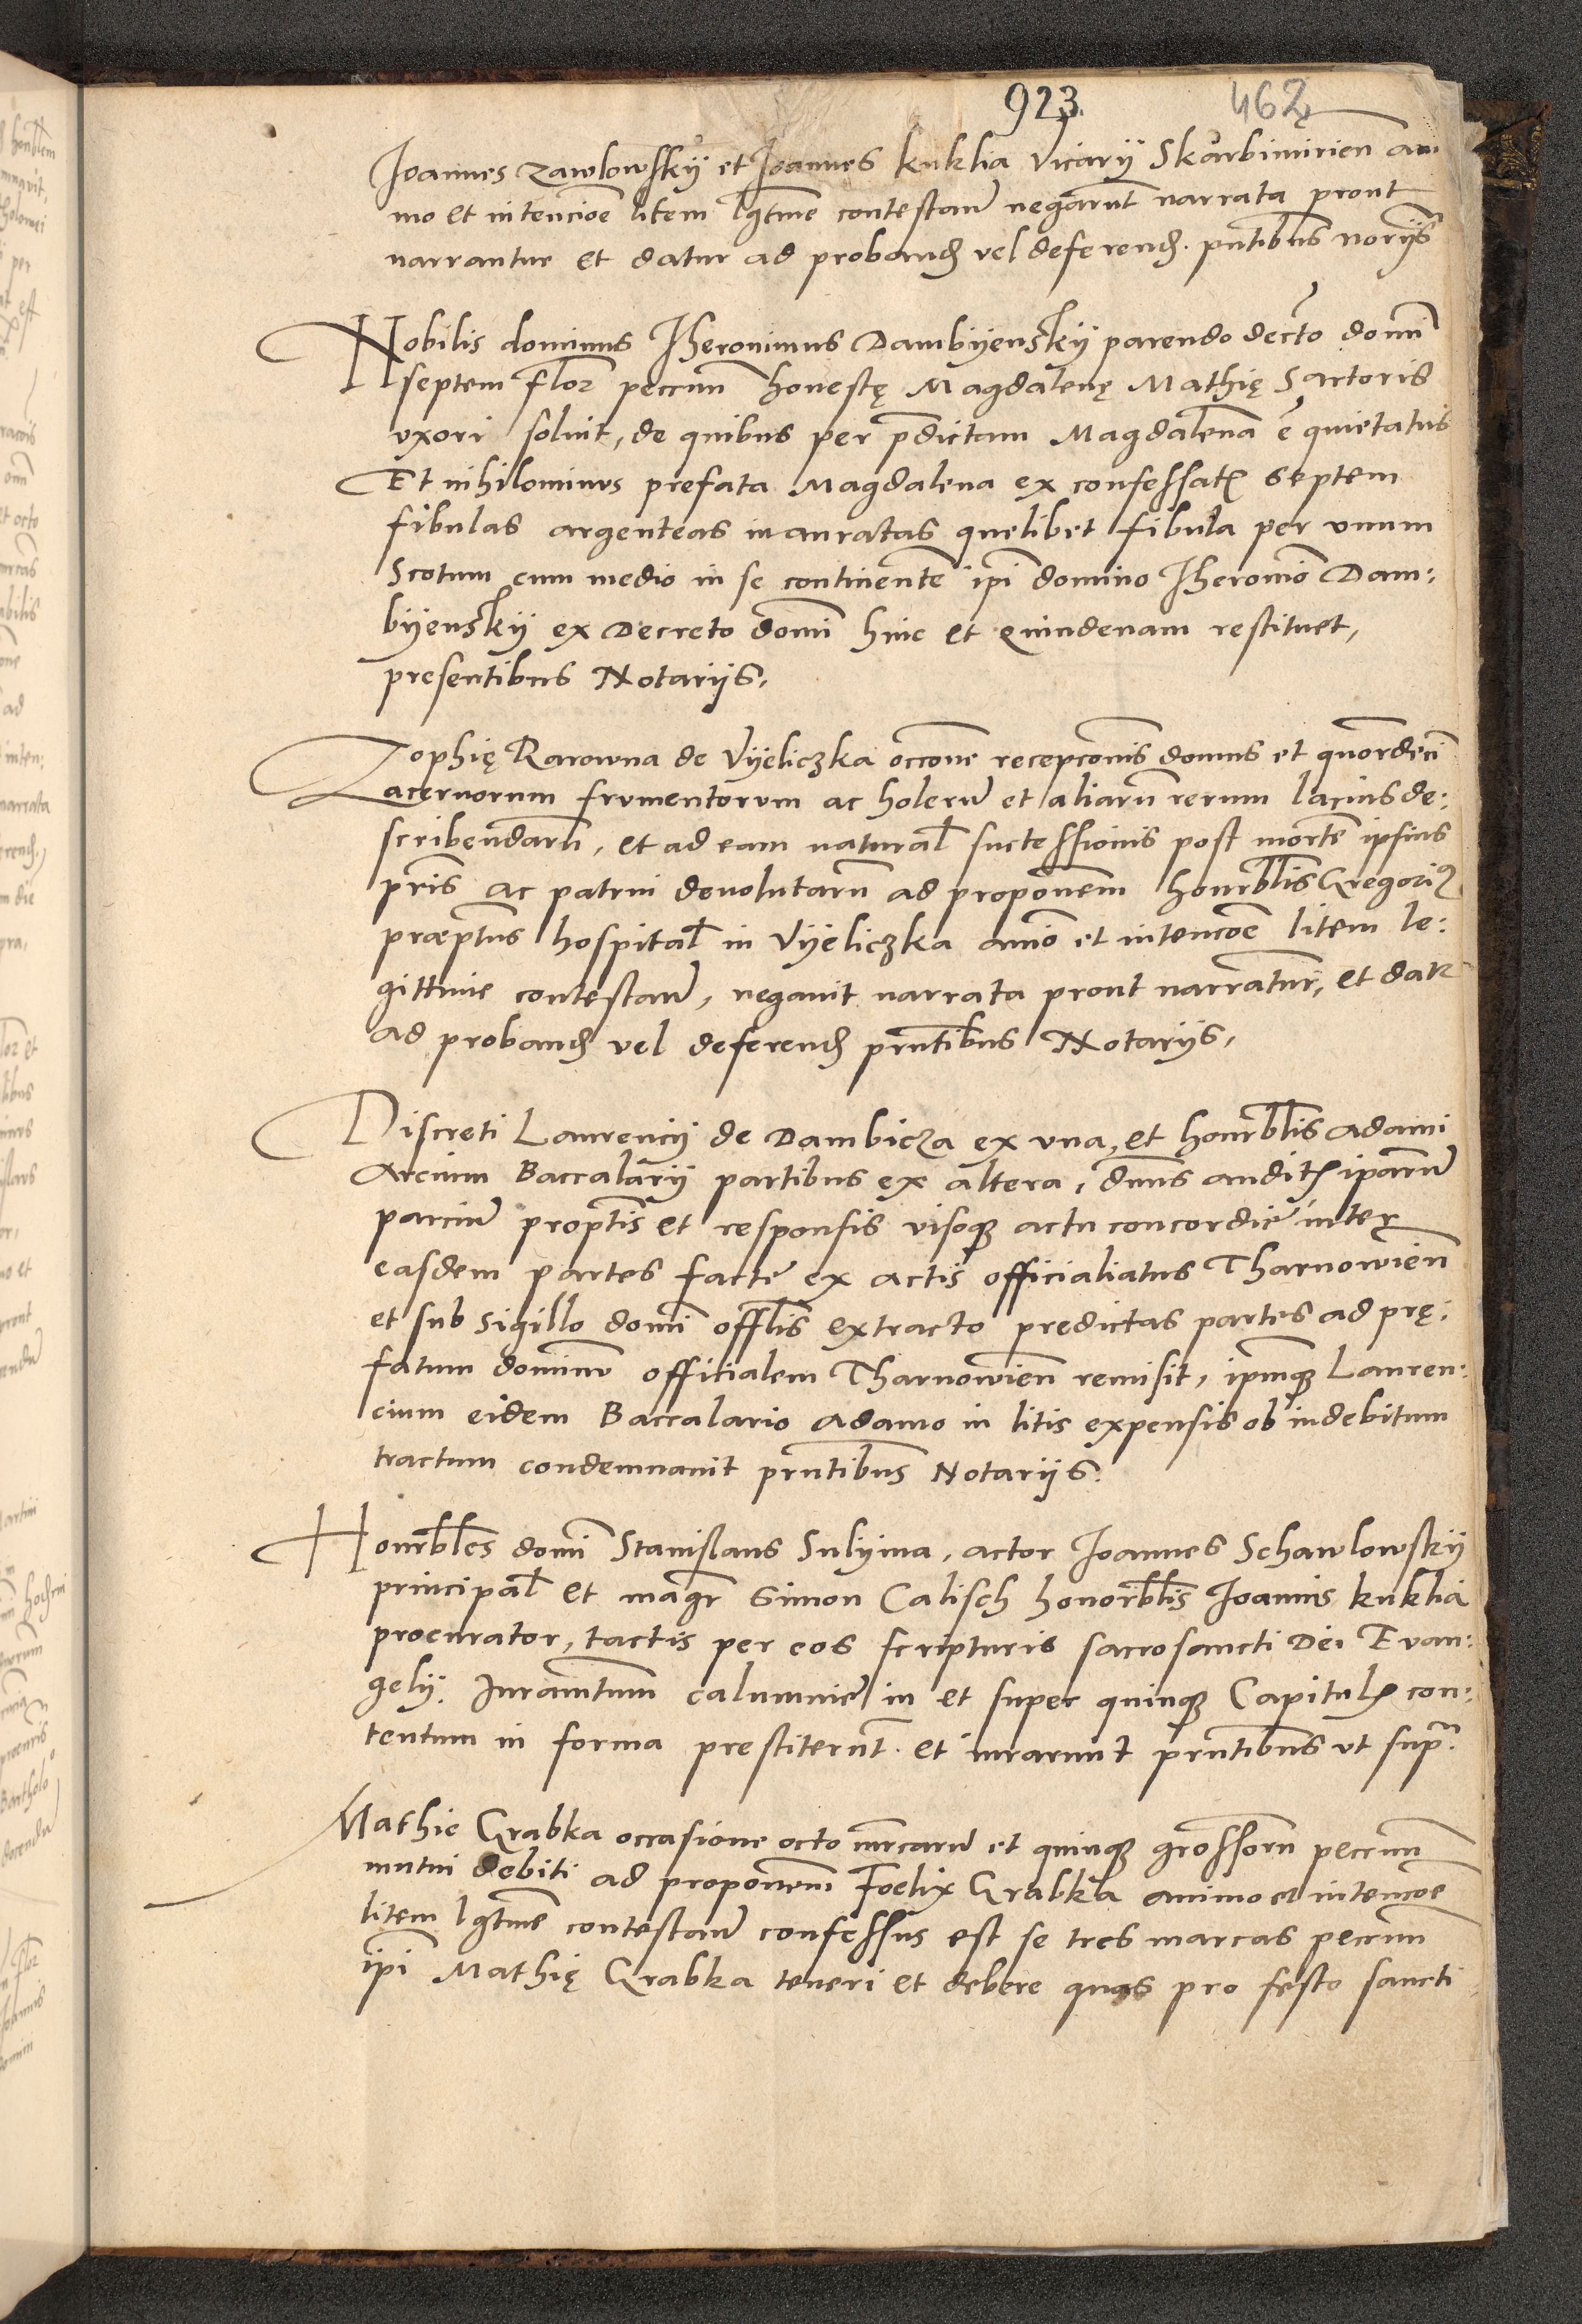 923. 462
Joannes Zawlowskÿ et Joannes kuklia Vicarÿ Skarbimirien̄ ani
mo et intencioē litem lgt̄me contestan̄ negarun̄t narrata prout
narrantur et datur ad proband̨ vel deferend̨. pn̄tibus noriÿs
Nobilis dominus Jheronimus Dambÿenskÿ parendo dec̄to domī
septem flor peccun̄ honestę Magdalenę Mathię Sartoris
vxori soluit, de quibus per p̄dictam Magdalenā ē quietatus
Et nihilominus prefata Magdalena ex confessat̨ septem
fibulas argenteas inauratas quelibet fibula per vnum
Scotum cum medio in se continentē ip̄i domino Jheronīo Dam:
bÿenskÿ ex Decreto domī hinc et quindenam restituet,
presentibus Notarijs,
Zophię Rarowna de Vÿeliczka occ̄one recepc̄onis domus et q̄uordecī
acernorum frumentorum ac holerū et aliarū rerum lacius de:
scribendarū, et ad eam natural̄ successionis post mortē ipsius
pr̄is ac patrui deuolutarū ad propōnem honor̄blis Gregoriꝰ
præp̄tus hospital̄ in Vÿeliczka anīo et intencoē litem le:
gittime contestan̄, negauit narrata prout narrātur, et datr
ad proband̨ vel deferend̨ prn̄tibus Notariÿs,
Discreti Laurencÿ de Dambicza ex vna, et honor̄blis Adami
Arcium Baccalarÿ partibus ex altera, dn̄us audit̨ ip̄arū
parciū prop̄tis et responsis visoq̨ actu concordie inter
easdem partes facte ex actis officialiatus Tharnowien̄
et sub sigillo domī offlīs extracto predictas partes ad prę:
fatum dominū officialem Tharnowien̄ remisit, ip̄mq̨ Lauren:
cium eidem Baccalario Adamo in litis expensis ob indebitum
tractum condemnauit prn̄tibus Notarijs.
Honor̄bles domī Stanislaus Sulÿma, actor Joannes Schawlowskÿ
principal̄ et magr̄ Simon Calisch honor̄blis Joannis kuklia
procurator, tactis per eos scripturis sacrosancti Dei Evan:
gelÿ. Juram̄tum calumnie in et super quinq̨ Capitul̨ con:
tentum in forma prestiterun̄t. et iurarunt prn̄tibus vt sup̄.
Mathie Grabka occasione octo mr̄carū et quinq̨ grossorū peccun̄
mutui debiti ad propōnem Foelix Grabka animo et intencoē
litem lgt̄me contestan̄ confessus est se tres marcas peccun̄
ip̄i Mathię Grabka teneri et debere quas pro festo sancti